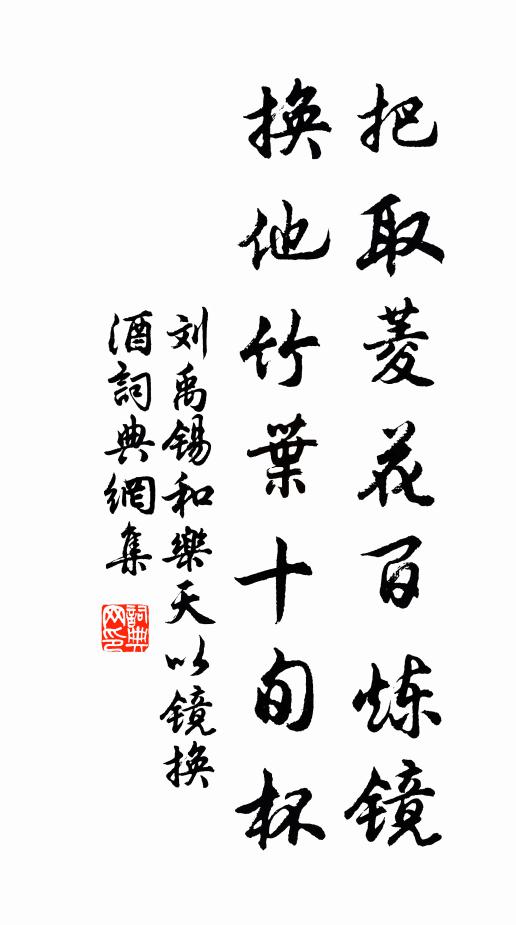 把取菱花百炼镜
换他竹葉十旬杯
刘禹锡和樂天以镜换
酒詞典網集
詞典
网印